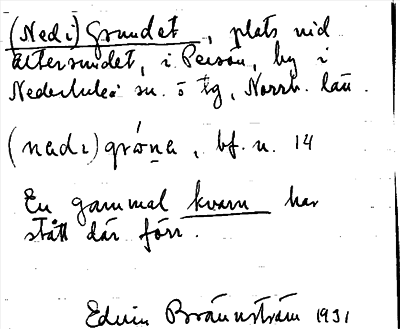 (Ned i) Grundet, plats vid
Altersundet, i Persön, by i
Nederluleå sn. o tg, Norrb. län.
(nadɩ) grṓna, bf. n. 14
En gammal kvarn har
stått där förr.
Edvin Brännström 1931